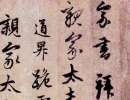 家書拜
親家太夫
道昇跪
親家太